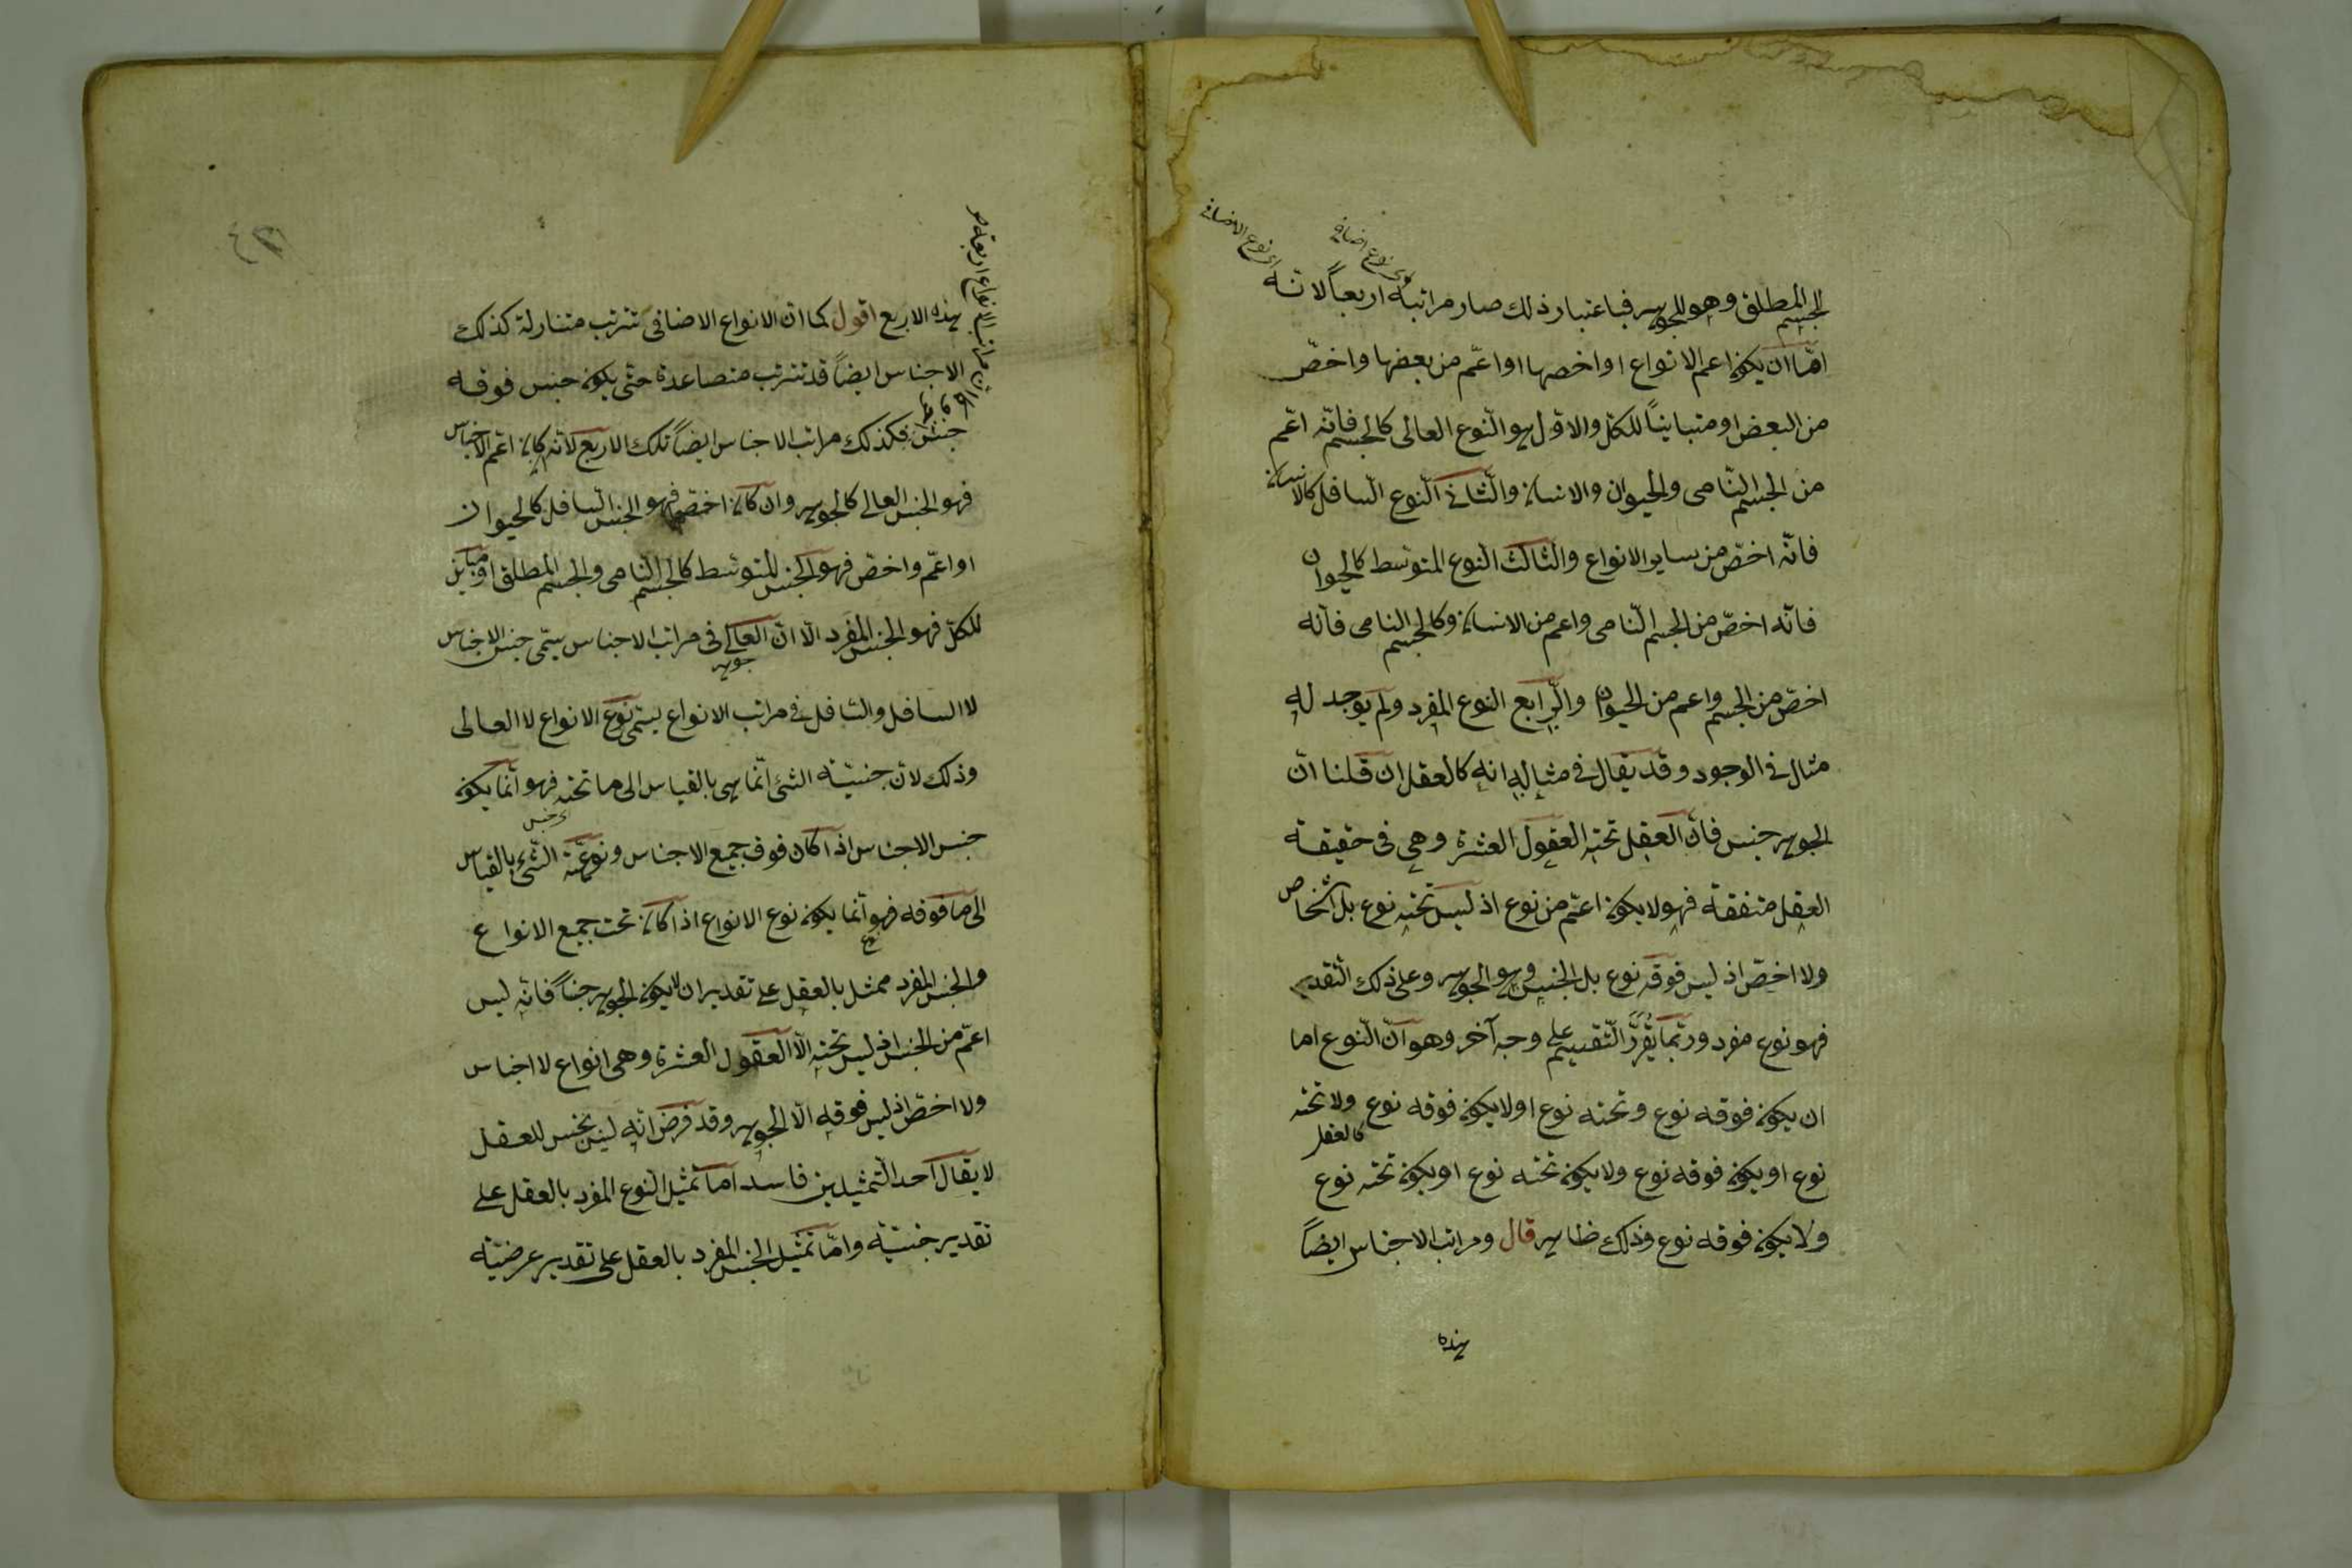 اى نوع الاضافى
اى نوع اضافى
الجسم المطلق وهو للجوهر فباعتبار ذلك صار مراتبه اربعاً لانه
امّا ان يكون اعم الانواع او اخصها او اعمّ من بعضها واخصّ
من البعض او متبايناً للكلّ والاوّل هو النّوع العالى كالجسم فانّه اعّم
من الجسم النّامى والحيوان والانسان والثّانى النّوع السّافل كالانسان
فانّه اخصّ من ساير الانواع والثالث النّوع المتوسّط كالحيوان
فانّه اخصّ من الجسم النّامى واعم من الانسان وكالجسم النامى فانّه
اخصّ من الجسم واعم من الحيوان والرّابع النوع المفرد ولم يوجد له
مثال فى الوجود وقد يقال فى مثاله انه كالعقل ان قلنا انّ
الجوهر جنس فانّ العقل تحته العقول العشرة وهى فى حقيقة
العقل متفقة فهو لا يكون اعمّ من نوع اذ ليس تحته نوع بل اشخاص
ولا اخصّ اذ ليس فوقه نوع بل الجنس وهو الجوهر وعلى ذلك التّقدير
فهو نوع مفرد وربّما يقرّر التّقسيم على وجه آخر وهو انّ النّوع اما
ان يكون فوقه نوع وتحته نوع اولا يكون فوقه نوع ولا تحته
كالعقل
نوع او يكون فوقه نوع ولا يكون تحته نوع او يكون تحته نوع
ولا يكون فوقه نوع وذلك ظاهر قال ومراتب الاجناس ايضاً
هذه
هذه الاربع اقول كما انّ الانواع الاضافى تترتب متنازلة كذلك
الاجناس ايضاً قد تترتب متصاعدة حتّى يكون جنس فوقه
جنس فكذلك مراتب الاجناس ايضاً تلك الاربع لانّه ان كان اعّم الاجناس
فهو الجنس العالى كالجوهر وان كان اخصّها فهو الجنس السّافل كالحيوان
او اعّم واخصّ فهو الجنس المتوسّط كالجسم النّامى والجسم المطلق او مباين
للكلّ فهو الجنس المفرد الّا انّ العالى فى مراتب الاجناس يسّمى جنس الاجناس
جوهر
لا السافل والسّافل فى مراتب الانواع يسّمى نوع الانواع لا العالى
وذلك لانّ جنسيّة الشئ انّما هى بالقياس الى ما تحته فهو انّما يكون
اى جنس
جنس الاجناس اذا كان فوق جميع الاجناس ونوعيّة الشّئ بالقياس
الى ما فوقه فهو انّما يكون نوع الانواع اذا كان تحت جميع الانواع
والجنس المفرد ممثل بالعقل على تقدير ان لا يكون الجوهر جنساً فانّه ليس
اعمّ من الجنس اذ ليس تحته الّا العقول العشرة وهى انواع لا اجناس
ولا اخصّ اذ ليس فوقه الّا الجوهر وقد فرض انّه ليس بجنس للعقل
لا يقال احد التّمثيلين فاسد امّا تمثيل النّوع المفرد بالعقل على
تقدير جنسيّة وامّا تمثيل الجنس المفرد بالعقل على تقدير عرضيّة